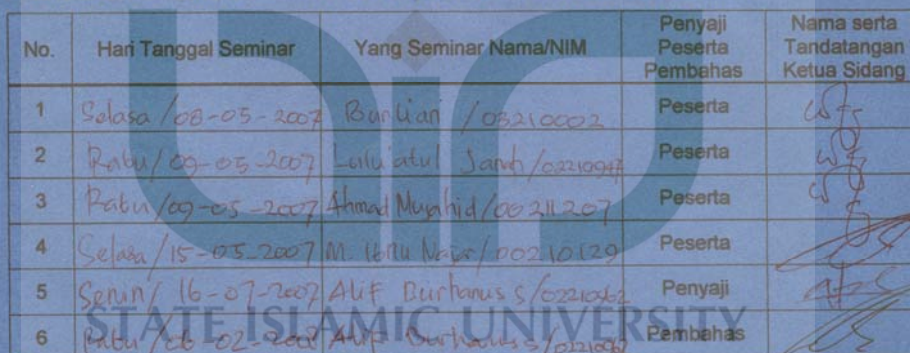 No. Hari Tanggal Seminar Yang Seminar Nama/NIM Penyaji Peserta Pembahas Nama serta Tandatangan Ketua Sidang
1 Selasa / 08-05-2007 Burlian / 03210002 Peserta
2 Rabu / 09-05-2007 Jarah / Peserta
3 Rabu / 09-05-2007 Ahmad Mujahid / 00211207 Peserta
4 Selasa / 15-05-2007 M. Ibnu / 00210129 Peserta
5 Senin / 16-07-2007 Alif Burhanus S / 02210962 Penyaji
6 Rabu / 06-02-2008 Alif Burhanus S / Pembahas
STATE ISLAMIC UNIVERSITY